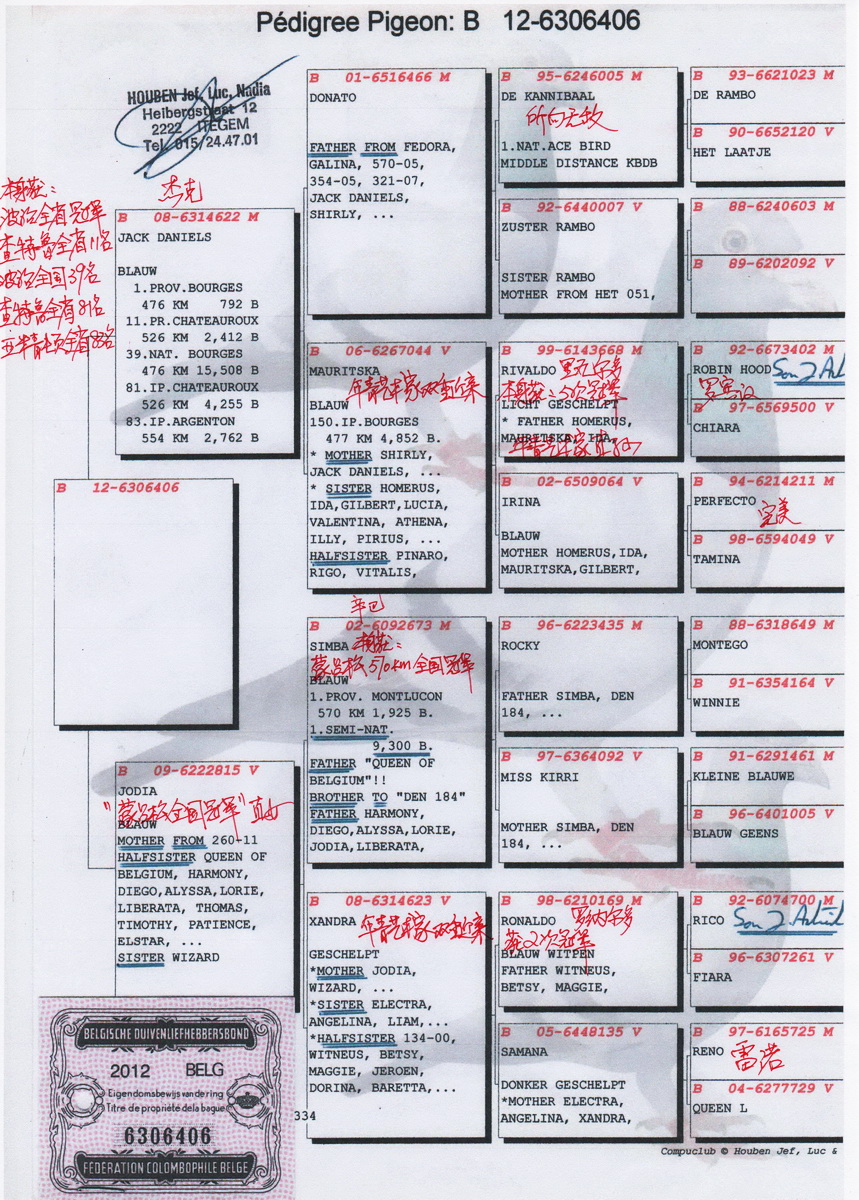 Pédigree Pigeon: B 12-6306406
HOUBEN Jef, Luc, Nadia
Heibergstraat 12
2222 ITEGEM
Tel. 015/24.47.01
杰克
本身获:
波治全省冠军
查特鲁全省11名
波治全国39名
查特鲁全省81名
B 08-6314622 M
JACK DANIELS
BLAUW
1.PROV.BOURGES
476 KM 792 B
11.PR.CHATEAUROUX
526 KM 2,412 B
39.NAT. BOURGES
476 KM 15,508 B
81.IP.CHATEAUROUX
526 KM 4,255 B
83.IP.ARGENTON
554 KM 2,762 B
B 12-6306406
B 09-6222815 V
JODIA
"蒙吕松全国冠军"直女
BLAUW
MOTHER FROM 260-11
HALFSISTER QUEEN OF
BELGIUM, HARMONY,
DIEGO,ALYSSA,LORIE,
LIBERATA, THOMAS,
TIMOTHY, PATIENCE,
ELSTAR, ...
SISTER WIZARD
B 01-6516466 M
DONATO
FATHER FROM FEDORA,
GALINA, 570-05,
354-05, 321-07,
JACK DANIELS,
SHIRLY, ...
B 06-6267044 V
MAURITSKA
年青艺术家双重近亲
BLAUW
150.IP.BOURGES
477 KM 4,852 B.
* MOTHER SHIRLY,
JACK DANIELS, ...
* SISTER HOMERUS,
IDA,GILBERT,LUCIA,
VALENTINA, ATHENA,
ILLY, PIRIUS, ...
HALFSISTER PINARO,
RIGO, VITALIS,
辛巴
B 02-6092673 M
SIMBA 本身获:
蒙吕松570km全国冠军
BLAUW
1.PROV. MONTLUCON
570 KM 1,925 B.
1.SEMI-NAT.
9,300 B.
FATHER "QUEEN OF
BELGIUM"!!
BROTHER TO "DEN 184"
FATHER HARMONY,
DIEGO,ALYSSA,LORIE,
JODIA,LIBERATA,
B 08-6314623 V
XANDRA
年青艺术家双重近亲
GESCHELPT
*MOTHER JODIA,
WIZARD, ...
*SISTER ELECTRA,
ANGELINA, LIAM,...
*HALFSISTER 134-00,
WITNEUS, BETSY,
MAGGIE, JEROEN,
DORINA, BARETTA,...
B 95-6246005 M
DE KANNIBAAL
所向无敌
1.NAT.ACE BIRD
MIDDLE DISTANCE KBDB
B 92-6440007 V
ZUSTER RAMBO
SISTER RAMBO
MOTHER FROM HET 051,
B 99-6143668 M
RIVALDO
本身获:5次冠军
LICHT GESCHELPT
* FATHER HOMERUS,
MAURITSKA, IDA,
年青艺术家直孙
B 02-6509064 V
IRINA
BLAUW
MOTHER HOMERUS,IDA,
MAURITSKA,GILBERT,
B 96-6223435 M
ROCKY
FATHER SIMBA, DEN
184, ...
B 97-6364092 V
MISS KIRRI
MOTHER SIMBA, DEN
184, ...
B 98-6210169 M
RONALDO 罗纳尔多
获2次冠军
BLAUW WITPEN
FATHER WITNEUS,
BETSY, MAGGIE,
B 05-6448135 V
SAMANA
DONKER GESCHELPT
*MOTHER ELECTRA,
ANGELINA, XANDRA,
B 93-6621023 M
DE RAMBO
B 90-6652120 V
HET LAATJE
B 88-6240603 M
B 89-6202092 V
B 92-6673402 M
ROBIN HOOD Son J.
罗宾汉
B 97-6569500 V
CHIARA
B 94-6214211 M
PERFECTO
完美
B 98-6594049 V
TAMINA
B 88-6318649 M
MONTEGO
B 91-6354164 V
WINNIE
B 91-6291461 M
KLEINE BLAUWE
B 96-6401005 V
BLAUW GEENS
B 92-6074700 M
RICO Son J.
B 96-6307261 V
FIARA
B 97-6165725 M
RENO 雷诺
B 04-6277729 V
QUEEN L
BELGISCHE DUIVENLIEFHEBBERSBOND
2012 BELG
Eigendomsbewijs van de ring
Titre de propriété de la bague
6306406
FEDERATION COLOMBOPHILE BELGE
334
Compuclub © Houben Jef, Luc &